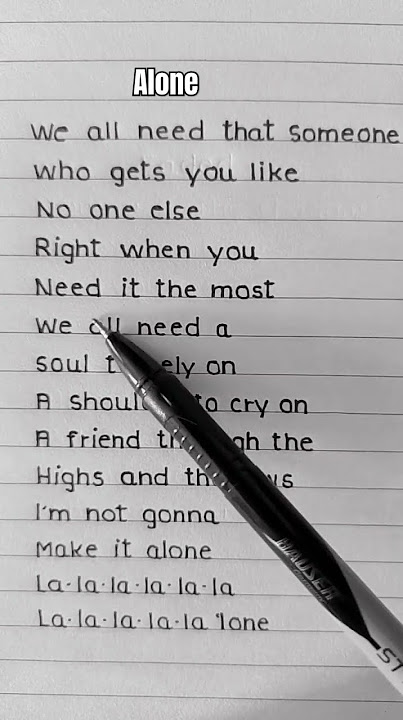 Alone
We all need that someone
who gets you like
No one else
Right when you
Need it the most
We all need a
soul t ely on
A shoul to cry on
A friend th gh the
Highs and th ws
I'm not gonna
Make it alone
La-la-la-la-la-la
La-la-la-la-la 'lone
HAUSER
ST